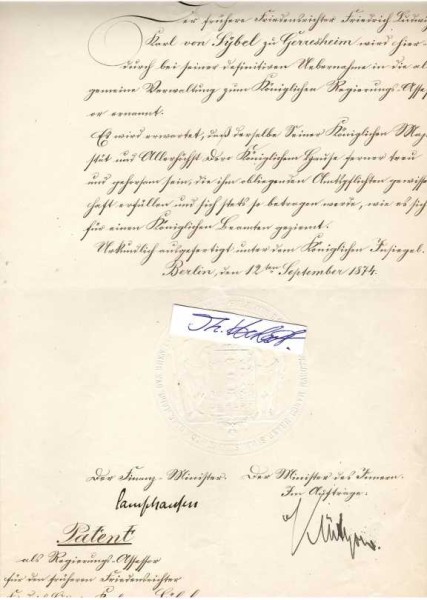 Der frühere Friedensrichter Friedrich Ludwig
Karl von Sybel zu Gerresheim wird hier-
durch bei seiner definitiven Uebernahme in die all-
gemeine Verwaltung zum Königlichen Regierungs-Assess-
or ernannt.
Es wird erwartet, daß derselbe Seiner Königlichen Maje-
stät und Allerhöchst Dero Königlichem Hause ferner treu
und gehorsam sein, die ihm obliegenden Amtspflichten gewissen-
haft erfüllen und sich stets so betragen werde, wie es sich
für einen Königlichen Beamten geziemt.
Urkundlich ausgefertigt unter dem Königlichen Insiegel.
Berlin, den 12ten September 1874.
Der Finanz-Minister.
Der Minister des Innern.
Im Auftrage:
Camphausen
Patent
als Regierungs-Assessor
für den früheren Friedensrichter